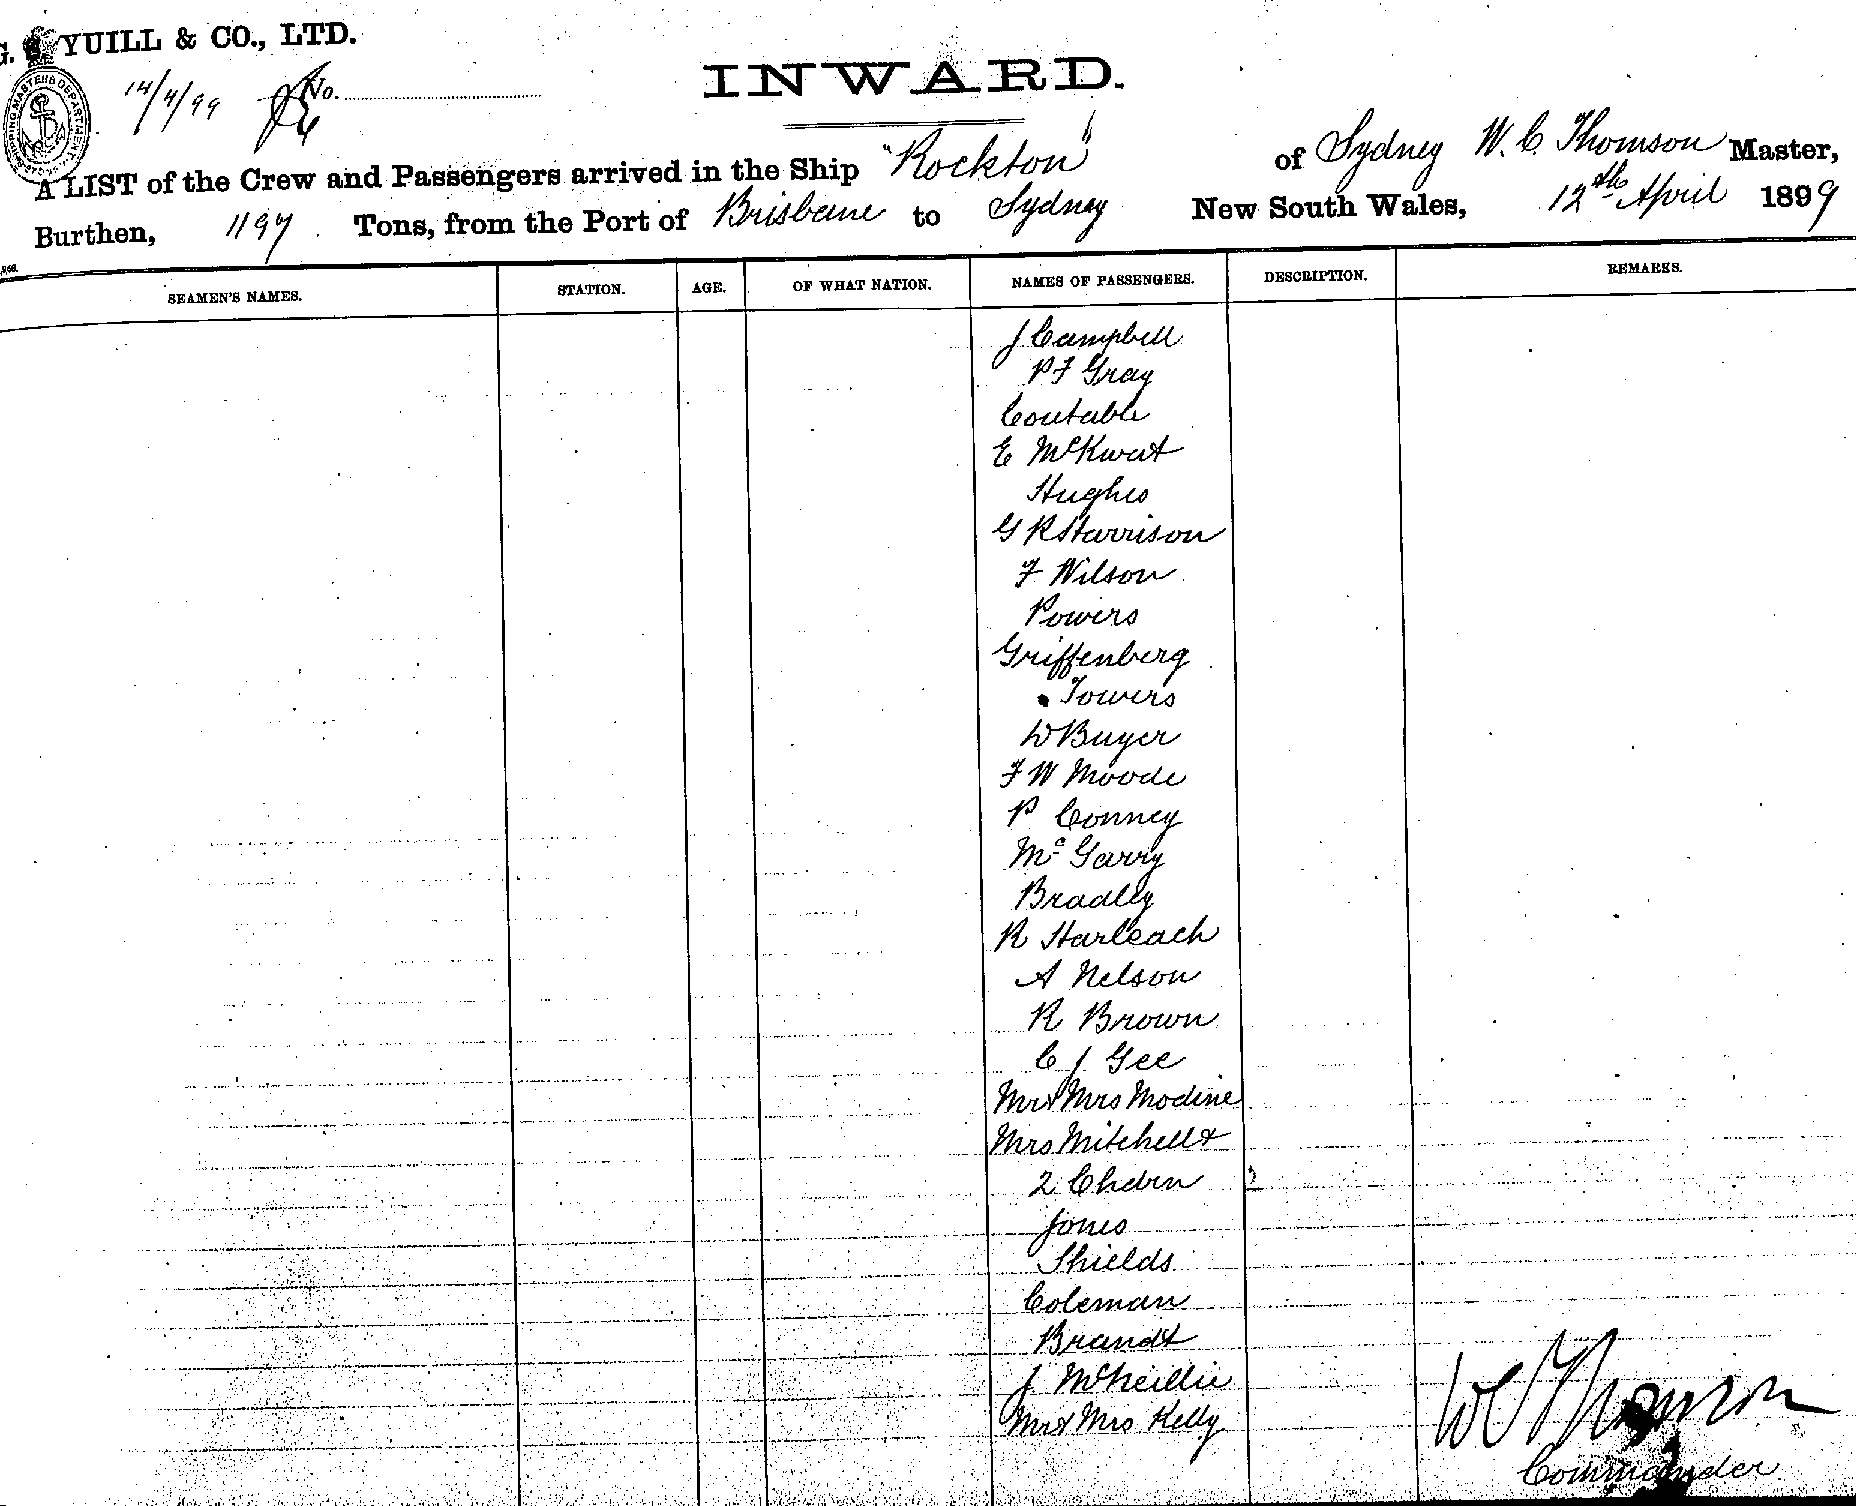 G. YUILL & CO., LTD.
INWARD.
14/4/99 No.
SHIPPING MASTERS DEPARTMENT
A LIST of the Crew and Passengers arrived in the Ship "Rockton" of Sydney W. C. Thomson Master,
Burthen, 1197 Tons, from the Port of Brisbane to Sydney New South Wales, 12th April 1899
SEAMEN'S NAMES. STATION. AGE. OF WHAT NATION. NAMES OF PASSENGERS. DESCRIPTION. REMARKS.
J Campbell
P F Gray
Coutable
E McKwat
Hughes
G R Harrison
F Wilson
Powers
Griffenberg
Towers
W Buyer
F W Moode
P Conney
Mc Garry
Bradlly
R Harleach
A Nelson
R Brown
C J Gee
Mr & Mrs Modine
Mrs Mitchell &
2 Chdrn
Jones
Shields
Coleman
Brandt
J McNeillie
Mr & Mrs Kelly
W C Thomson
Commander